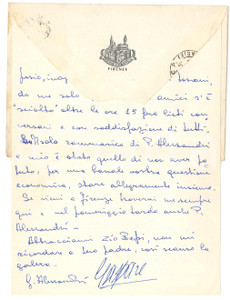 FIRENZE
da me solo amici s'è
"sciolto" oltre le ore 25 fra lieti con
versari e con soddisfazione di tutti.
solo rammarico di P. Alessandri
e mio è stato quello di non aver po
tuto, per una banale nostra questione
economica, stare allegramente insieme.
Se vieni a Firenze troverai me sempre
qui e nel pomeriggio tardo anche P.
Alessandri -
Abbracciami Zio Beppi, non mi
ricordare a tuo padre, così scanso la
galera.
G. Alessandri